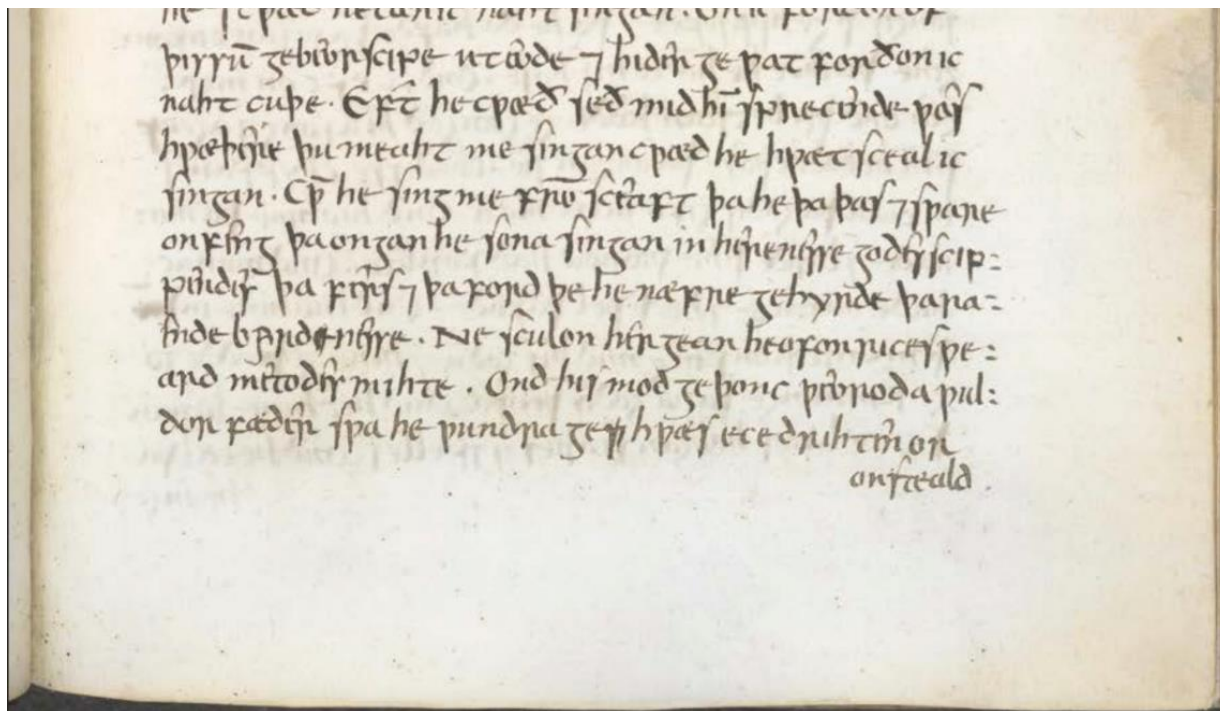 þissū gebeorscipe ut eode ⁊ hider ge ƿat forðon ic
naht cuþe. Eft he cƿæð seð mid hī sprecende ƿæs
hƿæþere þu meaht me singan cƿæð he hƿæt sceal ic
singan. Cƿ̄ he sing me sceaft þa he þa þas ⁊sƿare
onfeng þa ongan he sona singan in herenesse godes scip:
pendes þa fers ⁊ þa ford þe he næfre gehyrde þara:
ende byrdenesse. Ne sculon hergean heofonrices ƿe:
ard metodes mihte. Ond his mod geþonc ƿeoroda ƿul:
dor fæder sƿa he ƿundra gehƿæs ece drihten or
onsteald